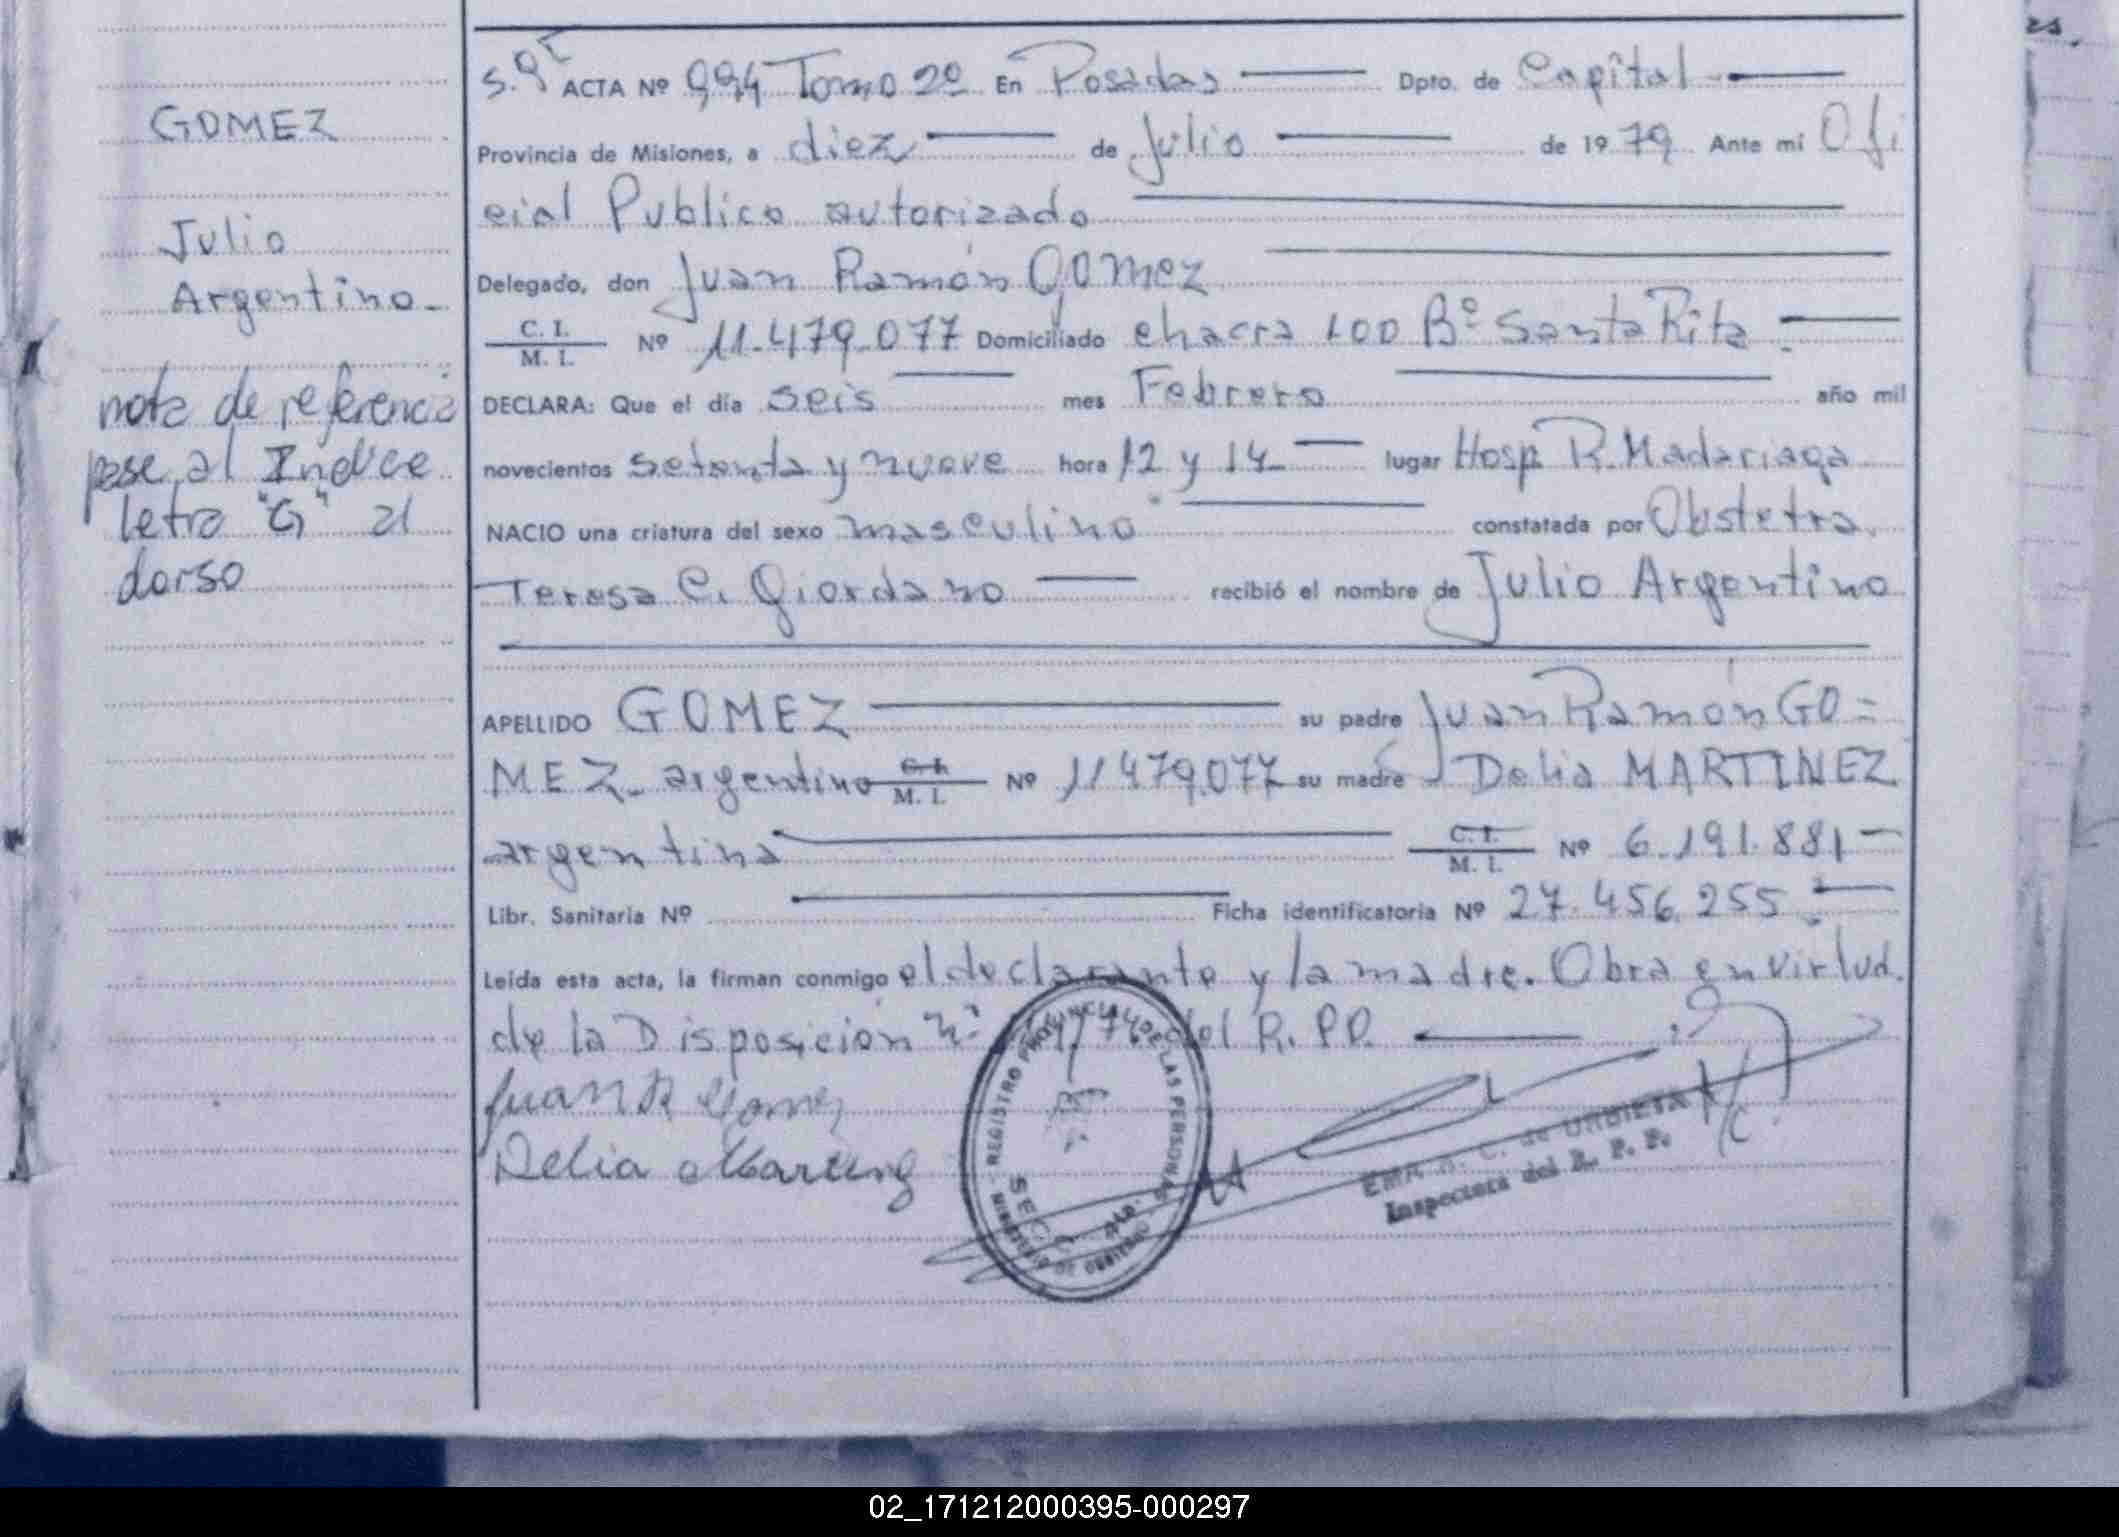 GOMEZ
Julio
Argentino-
nota de referencia
pase al Indice
letra "G" al
dorso
ACTA Nº 994 Tomo 2º En Posadas Dpto. de Capital
Provincia de Misiones, a diez de Julio de 1979 Ante mí Ofi
cial Publico autorizado
Delegado, don Juan Ramón Gomez
C. I.
M. I. Nº 11.479.077 Domiciliado chacra 100 Bº Santa Rita
DECLARA: Que el día seis mes Febrero año mil
novecientos setenta y nueve hora 12 y 14 lugar Hosp R. Madariaga
NACIO una criatura del sexo masculino constatada por Obstetra
Teresa C. Giordano recibió el nombre de Julio Argentino
APELLIDO GOMEZ su padre Juan Ramón GO=
MEZ- argentino C. I. M. I. Nº 11479.077 su madre Delia MARTINEZ
argentina C. I. M. I. Nº 6.191.881
Libr. Sanitaria Nº Ficha identificatoria Nº 27.456.255
Leída esta acta, la firman conmigo el declarante y la madre. Obra en virtud
de la Disposición del R. PP.
Juan R Gomez
Delia Martinez
REGISTRO PROVINCIAL DE LAS PERSONAS
MINISTERIO DE GOBIERNO
C. de URBIETA
Inspectora del R. P. P.
02_171212000395-000297